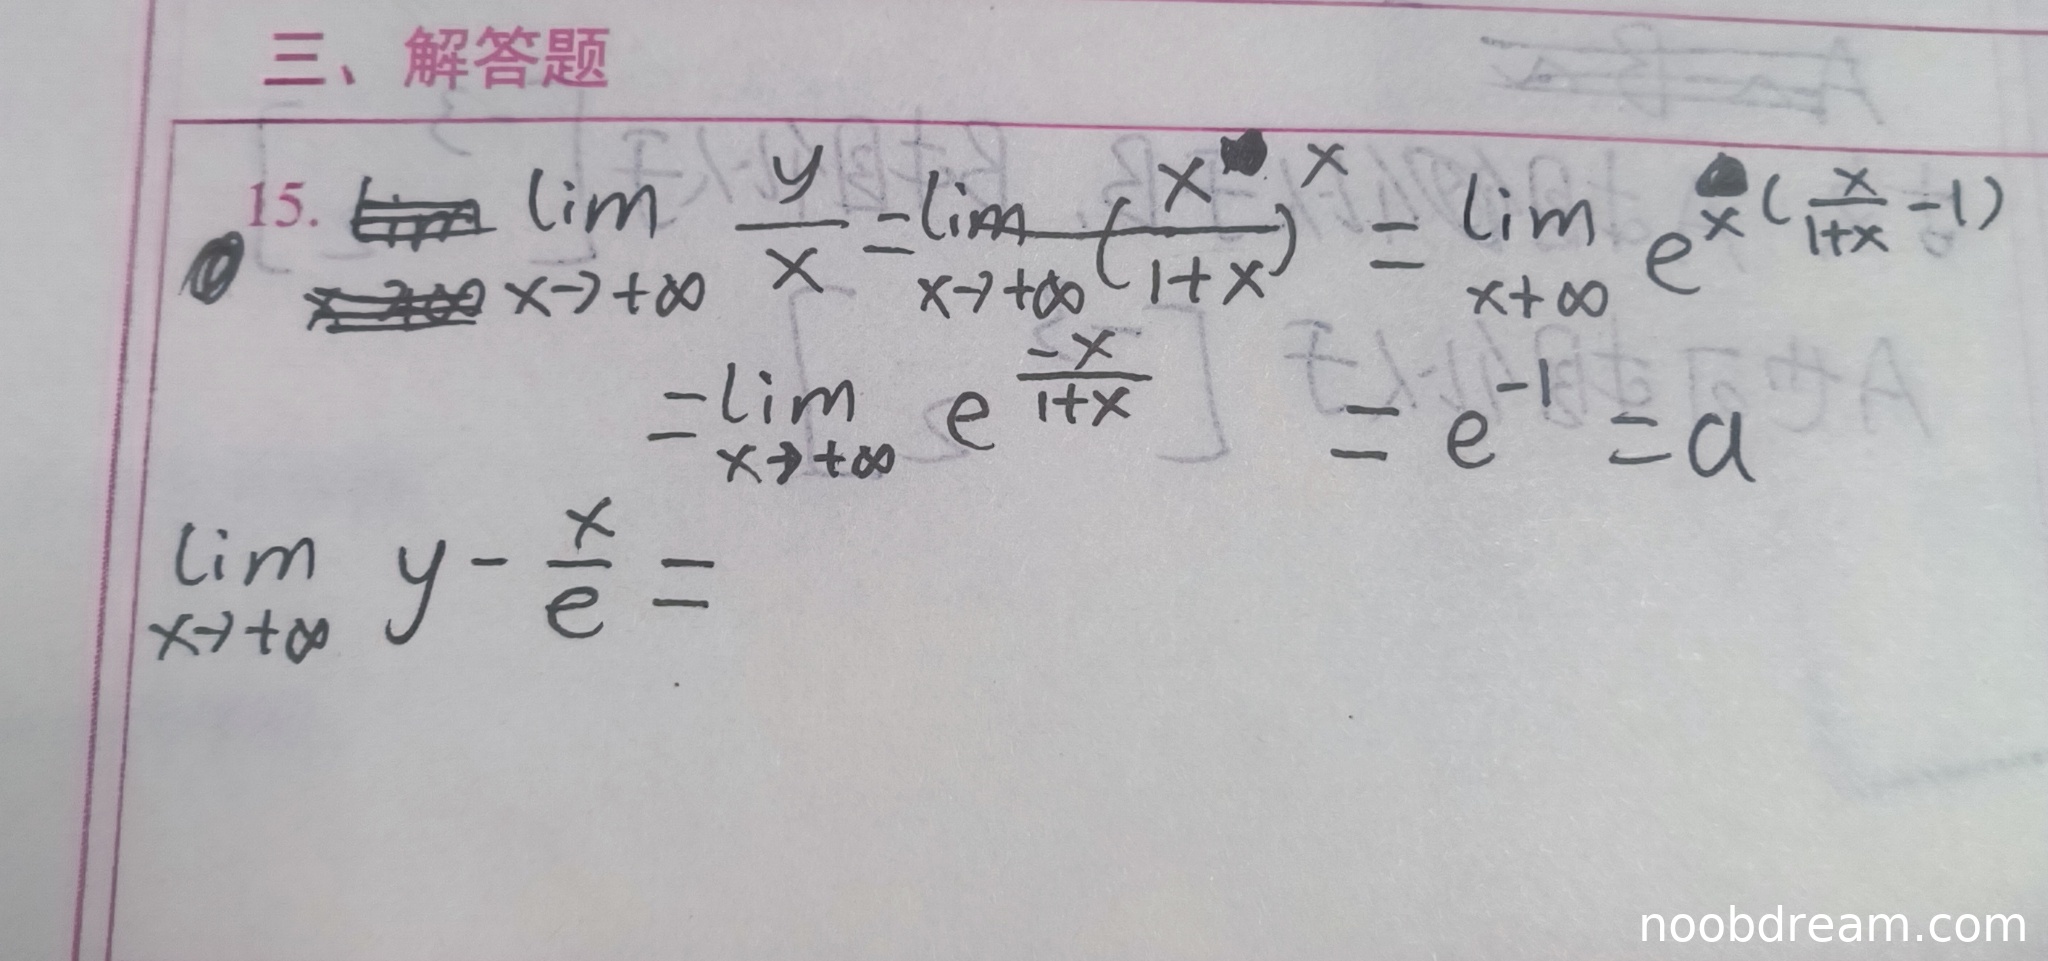 三、解答题
15. lim x→+∞ y/x = lim x→+∞ (x/(1+x))^x = lim x+∞ e^(x(x/(1+x) -1))
= lim x→+∞ e^(-x/(1+x)) = e^-1 = a
lim x→+∞ y - x/e =
noobdream.com